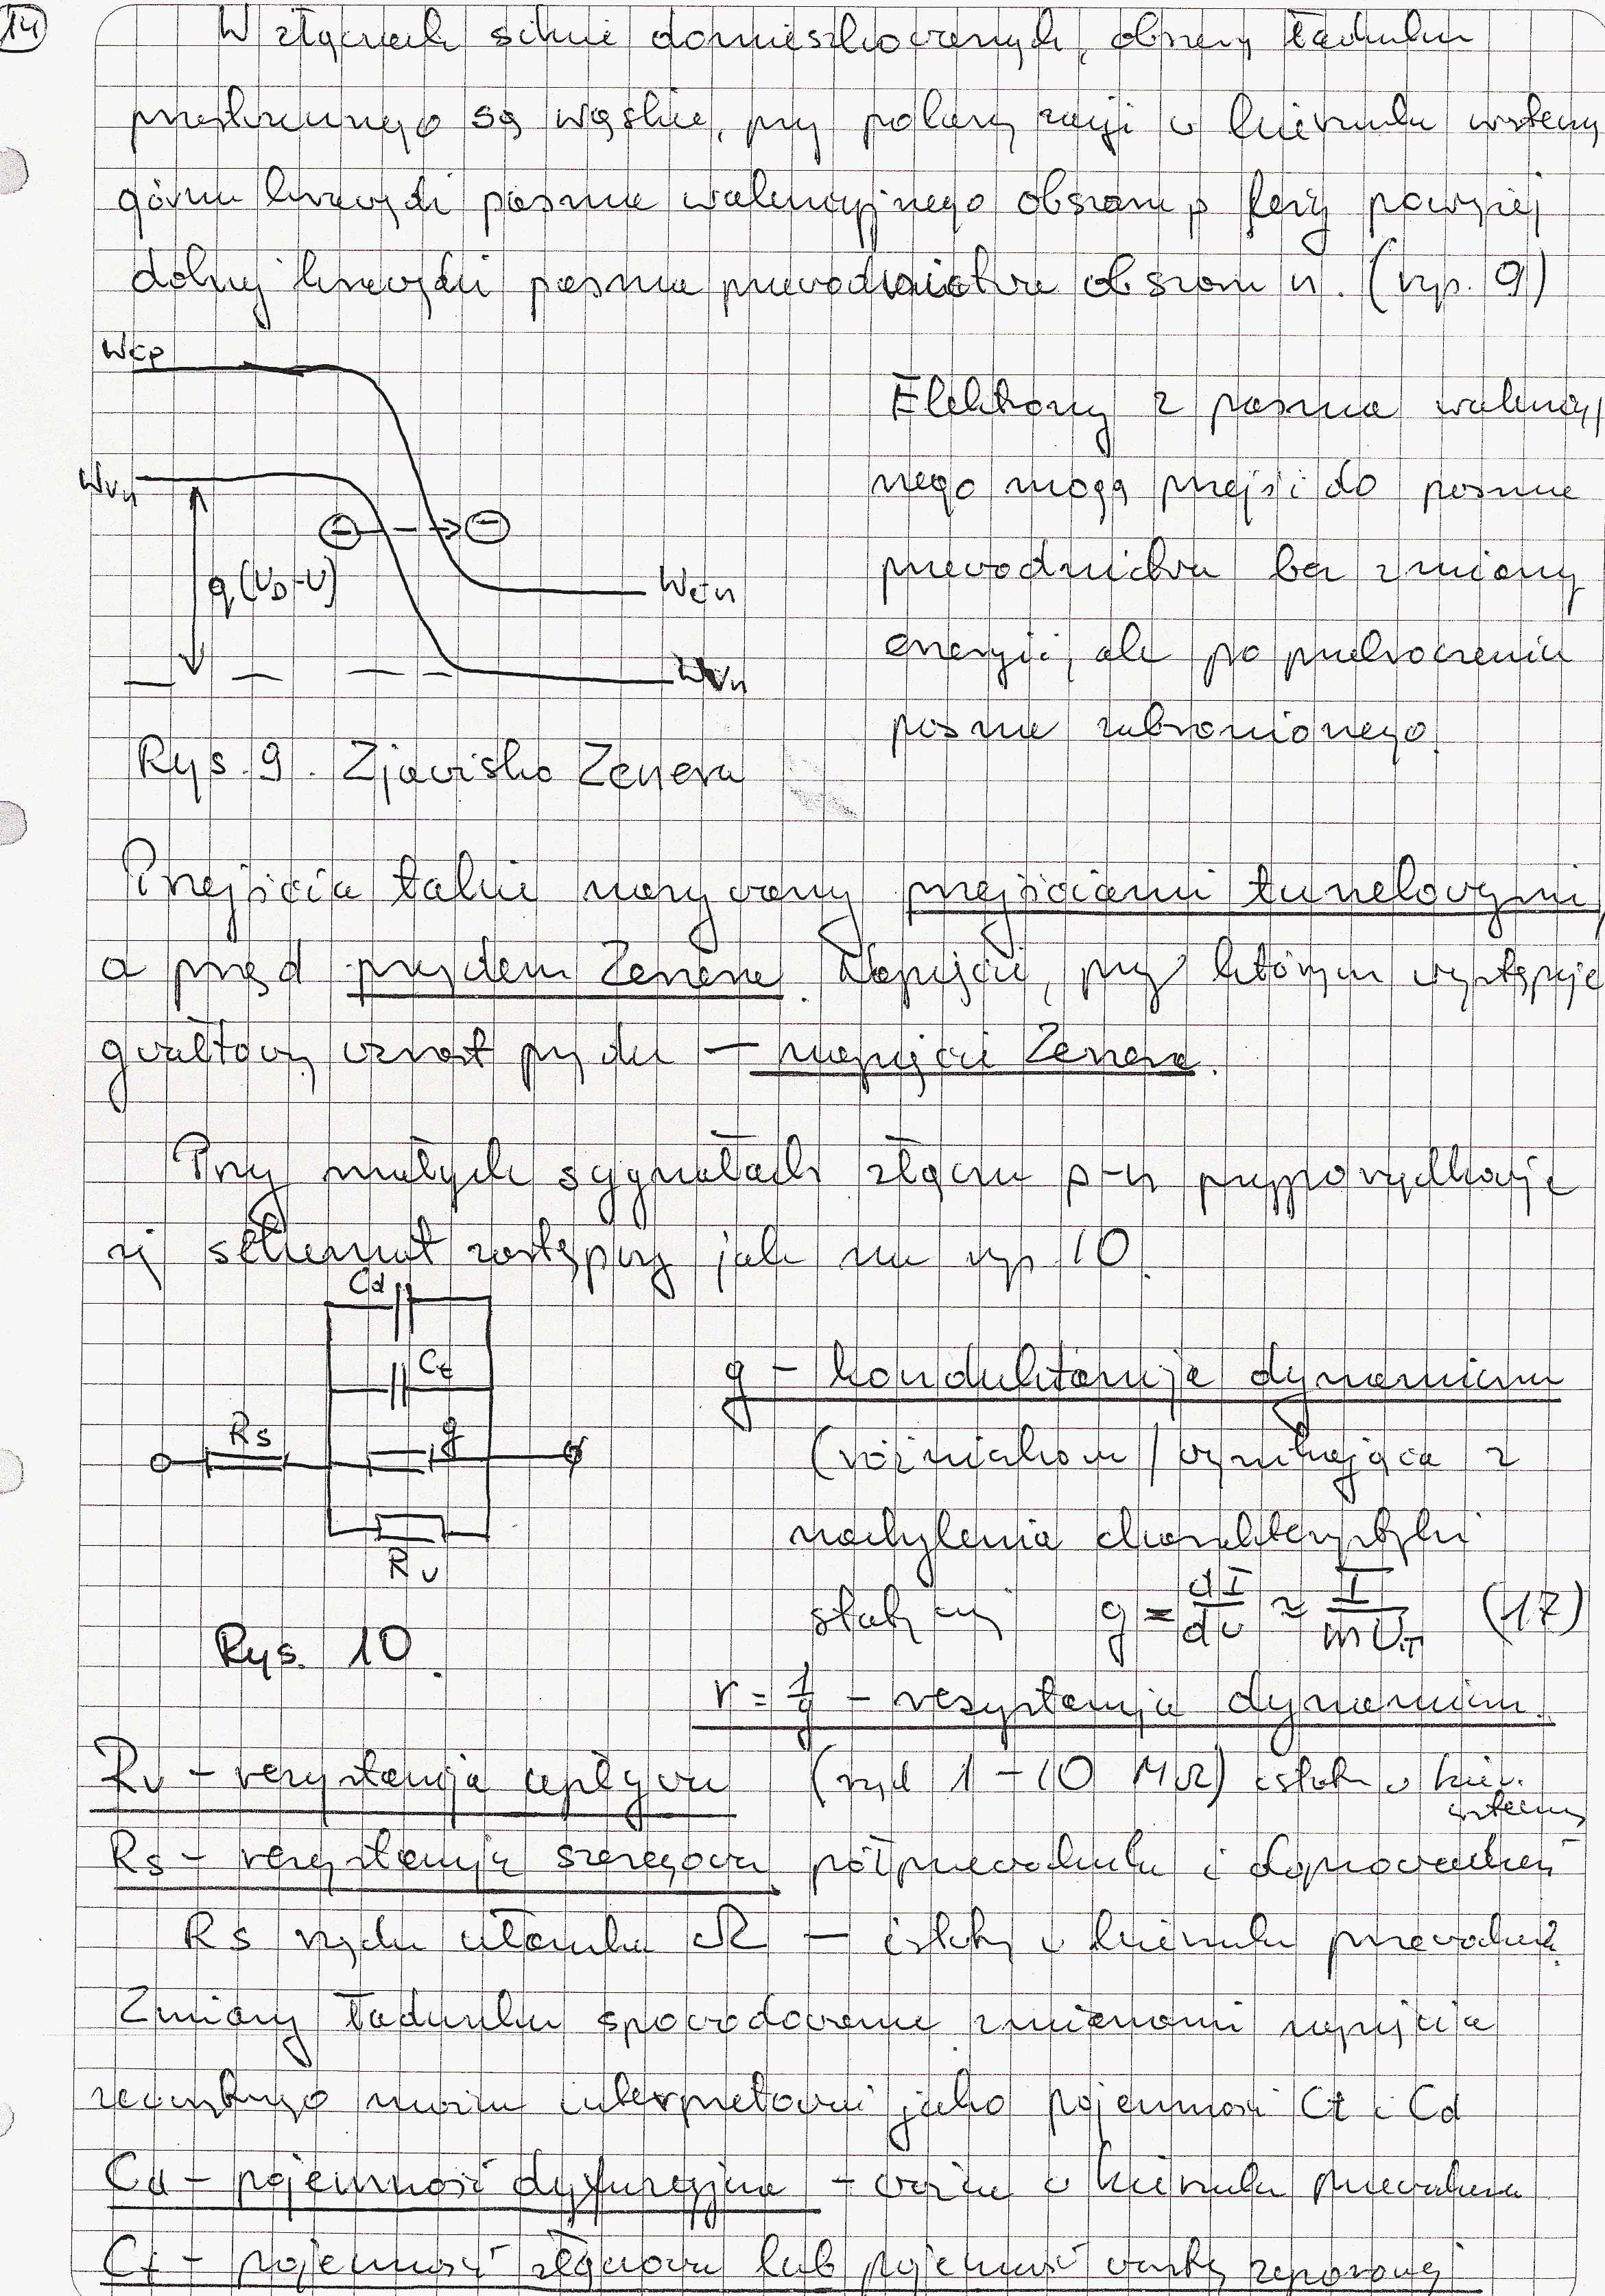 14
W złączach silnie domieszkowanych, obszary ładunku
przestrzennego są wąskie, przy polaryzacji w kierunku wstecznym
górna krawędź pasma walencyjnego obszaru p leży powyżej
dolnej krawędzi pasma przewodnictwa obszaru n. (rys. 9)
Wcp
Elektrony z pasma walencyj
Wvn
nego mogą przejść do pasma
+ -
q(UD-U)
Wcn
przewodnictwa bez zmiany
energii, ale po przekroczeniu
Wvn
pasma zabronionego.
Rys. 9. Zjawisko Zenera
Przejścia takie nazywamy przejściami tunelowymi,
a prąd prądem Zenera. Napięcie, przy którym występuje
gwałtowny wzrost prądu – napięcie Zenera.
Przy małych sygnałach złączu p-n przyporządkowuje
się schemat zastępczy jak na rys 10.
Cd
Ct
g – konduktancja dynamiczna
Rs
g
(różniczkowa) wynikająca z
nachylenia charakterystyki
Ru
statycznej g = dI/du ≈ I/mUT (17)
Rys. 10.
r = 1/g – rezystancja dynamiczna.
Ru – rezystancja upływu (rzęd 1–10 MΩ) istotna w kier. wstecznym
Rs – rezystancja szeregowa półprzewodnika i doprowadzeń
Rs rzędu ułamka Ω – istotny w kierunku przewodzenia
Zmiany ładunku spowodowane zmianami napięcia
zewnętrznego można interpretować jako pojemności Ct i Cd
Cd – pojemność dyfuzyjna – ważna w kierunku przewodzenia
Ct – pojemność złączowa lub pojemność warstwy zaporowej